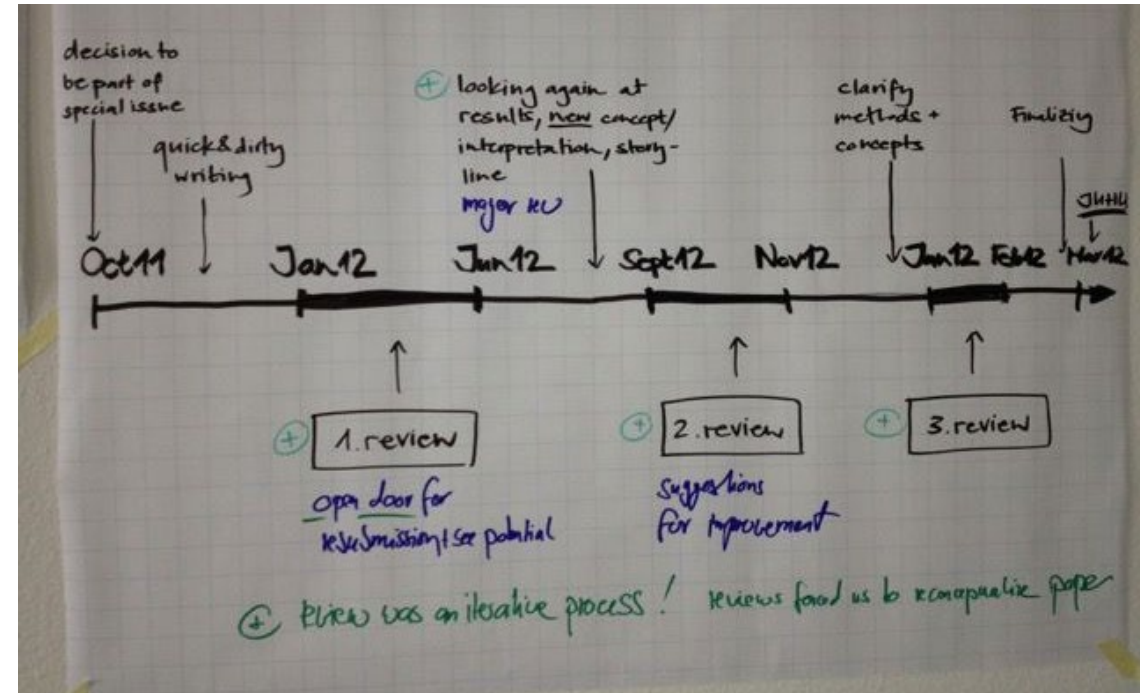 decision to
be part of
special issue
quick & dirty
writing
+ looking again at
results, new concept/
interpretation, story-
line
major rev
clarify
methods +
concepts
Finalizing
Oct 11
Jan 12
Jun 12
Sept 12
Nov 12
Jan 12
Feb 12
Mar 12
+ 1. review
open door for
resubmission, see potential
+ 2. review
suggestions
for improvement
+ 3. review
+ review was an iterative process! reviews forced us to reconceptualize paper